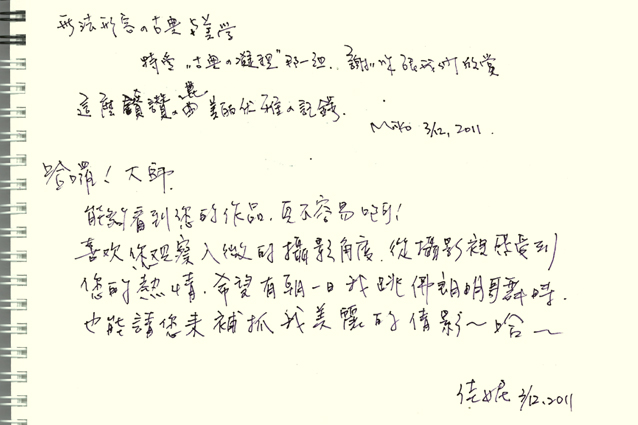 無法形容の古典与美學
特愛"古典の對理"那一組.. 謝謝你讓我們欣賞
這麼讚の典美的优雅の記錄.
Miko 3/12, 2011.
哈囉！大師.
能夠看到您的作品.真不容易吧!
喜欢您观察入微的攝影角度.從攝影裡感受到
您的熱情.希望有朝一日我跳佛朗明哥舞時.
也能請您來補抓我美麗的倩影～哈～
佳妮 3/12, 2011